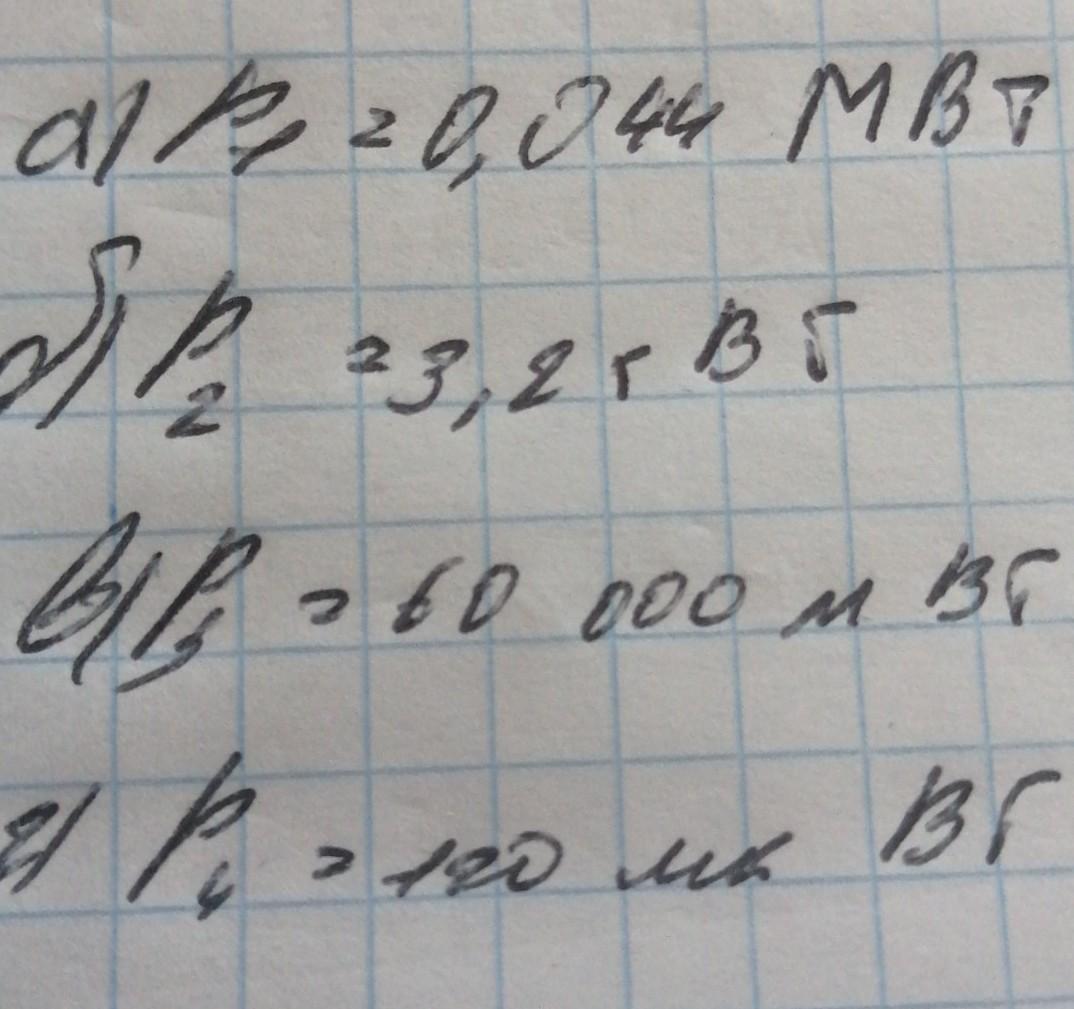 а) P₁ = 0,044 МВт
б) P₂ = 3,2 гВт
в) P₃ = 60 000 мВт
г) P₄ = 120 мкВт